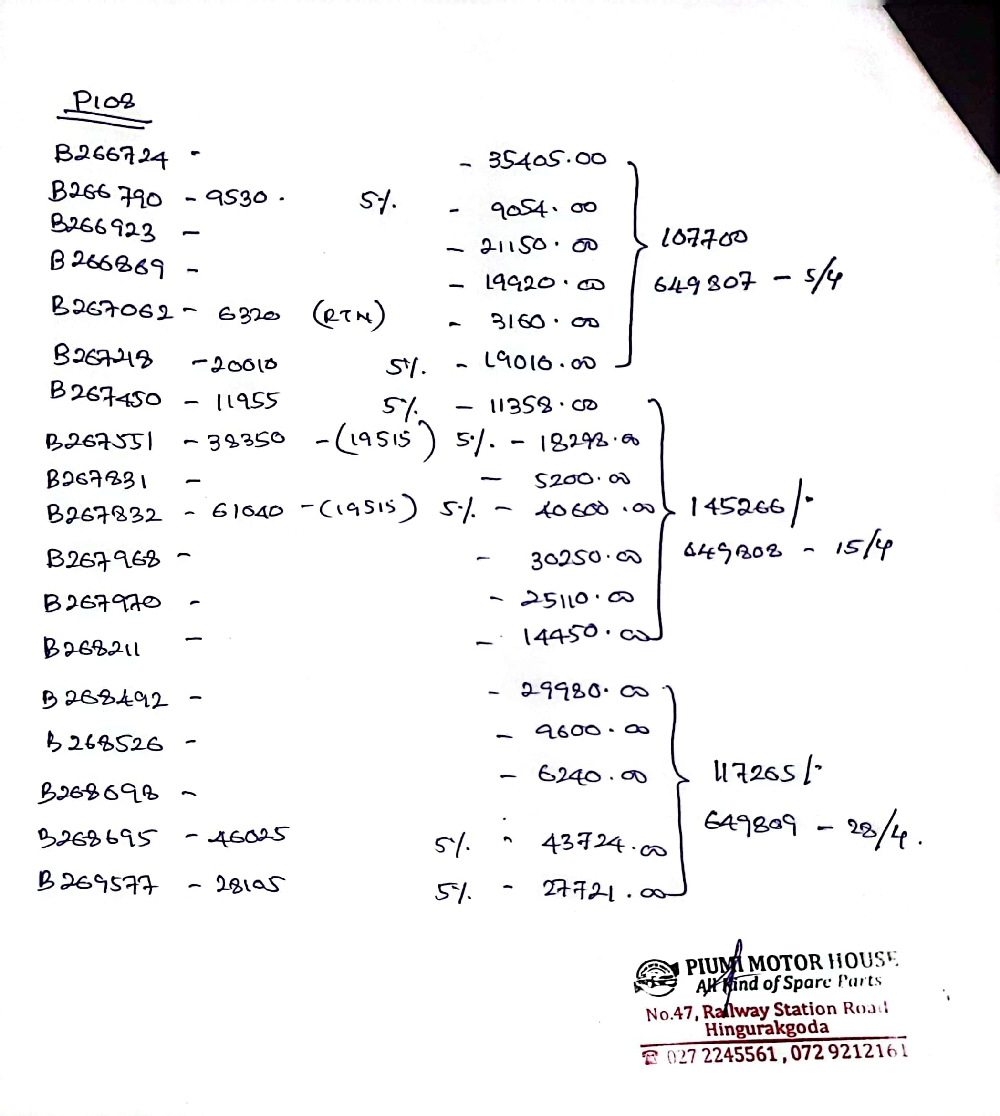 P108
B266724 - - 35405.00
B266790 - 9530. 5% - 9054.00
B266923 - - 21150.00
B266869 - - 19920.00
B267062 - 6320 (RTN) - 3160.00
B267218 - 20010 5% - 19010.00
107700
649807 - 5/4
B267450 - 11955 5% - 11358.00
B267551 - 38350 - (19515) 5% - 18298.00
B267831 - - 5200.00
B267832 - 61040 - (19515) 5% - 40600.00
B267968 - - 30250.00
B267970 - - 25110.00
B268211 - - 14450.00
145266/-
649808 - 15/4
B268492 - - 29980.00
B268526 - - 9600.00
B268698 - - 6240.00
B268695 - 46025 5% - 43724.00
B269577 - 28195 5% - 27721.00
117265/-
649809 - 28/4.
PIUMI MOTOR HOUSE
All Kind of Spare Parts
No.47, Railway Station Road
Hingurakgoda
☎ 027 2245561, 072 9212161